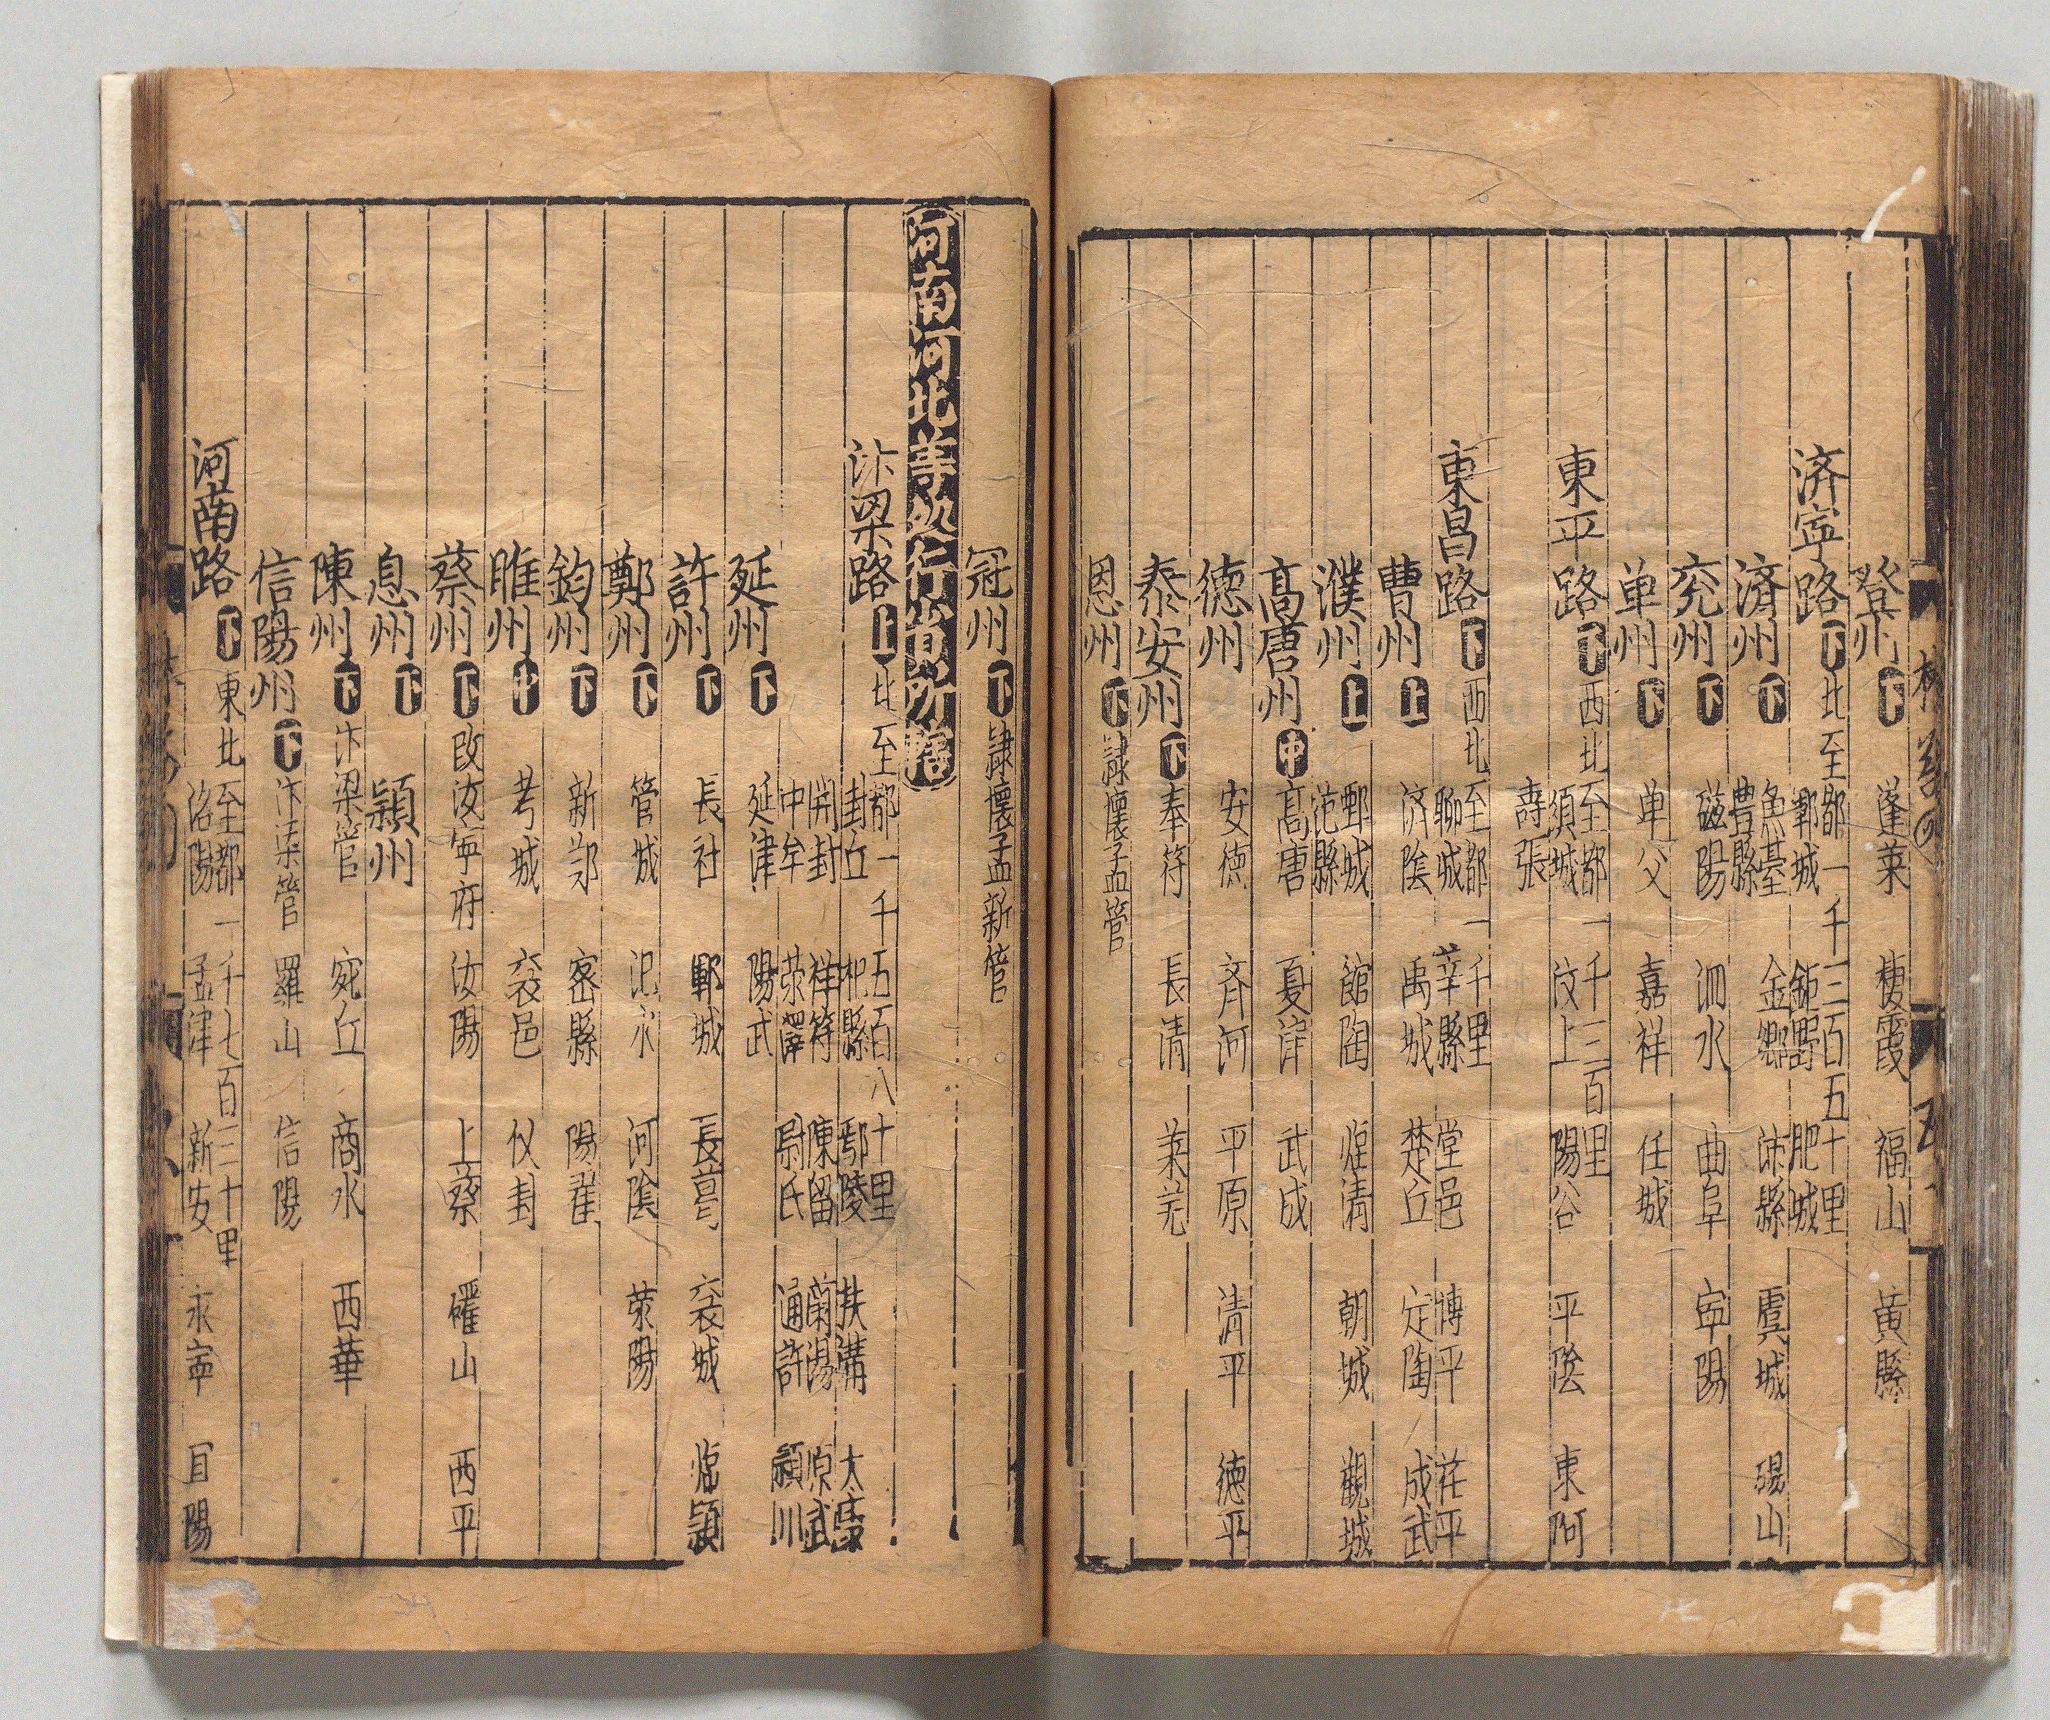 登州 下 蓬莱 棲霞 福山 黄縣
済寧路 下 北至都一千三百五十里
鄆城 鉅野 肥城
魚臺 金郷 沛縣 虞城 碭山
済州 下 豊縣
兖州 下 磁陽 泗水 曲阜 寜陽
单州 下 单父 嘉祥 任城
東平路 下 西北至都一千三百里
須城 汶上 陽谷 平陰 東阿
壽張
東昌路 下 西北至都一千里
聊城 莘縣 堂邑 博平 茌平
曹州 上 済隂 禹城 楚丘 定陶 成武
濮州 上 鄄城 館陶 临清 朝城 觀城
范縣
髙唐州 中 髙唐 夏津 武成
德州 安德 斉河 平原 清平 德平
泰安州 下 奉符 長清 莱芜
恩州 下 隷懐孟管
冠州 下 隷懐孟新管
河南河北等処行省所轄
汴梁路 上 北至都一千五百八十里
封丘 杞縣 鄢陵 扶溝 太康
開封 祥符 陳留 蘭陽 原武
中牟 荥澤 尉氏 通許 頴川
延州 下 延津 陽武
許州 下 長社 郾城 長葛 襄城 临潁
鄭州 下 管城 汜水 河隂 荥陽
鈞州 下 新郑 密縣 陽翟
睢州 中 考城 襄邑 仪封
蔡州 下 改汝寜府 汝陽 上蔡 確山 西平
息州 下 潁州
陳州 下 汴梁管 宛丘 商水 西華
信陽州 下 汴梁管 羅山 信陽
河南路 下 東北至都一千七百三十里
洛陽 孟津 新安 永寜 宜陽